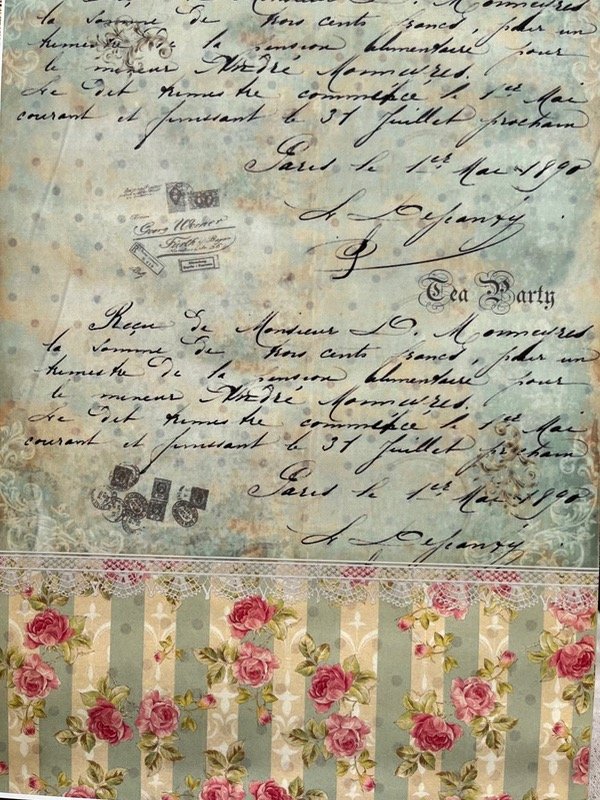 la Somme de trois cents francs, pour un
trimestre de la pension alimentaire pour
le mineur André Monnievres.
Le dit trimestre commence le 1er Mai
courant et finissant le 31 Juillet prochain
Paris le 1er Mai 1890
Georg Werner
Tea Party
Reçu de Monsieur D. Monnievres
la Somme de trois cents francs, pour un
trimestre de la pension alimentaire pour
le mineur André Monnievres.
Le dit trimestre commence le 1er Mai
courant et finissant le 31 Juillet prochain
Paris le 1er Mai 1890